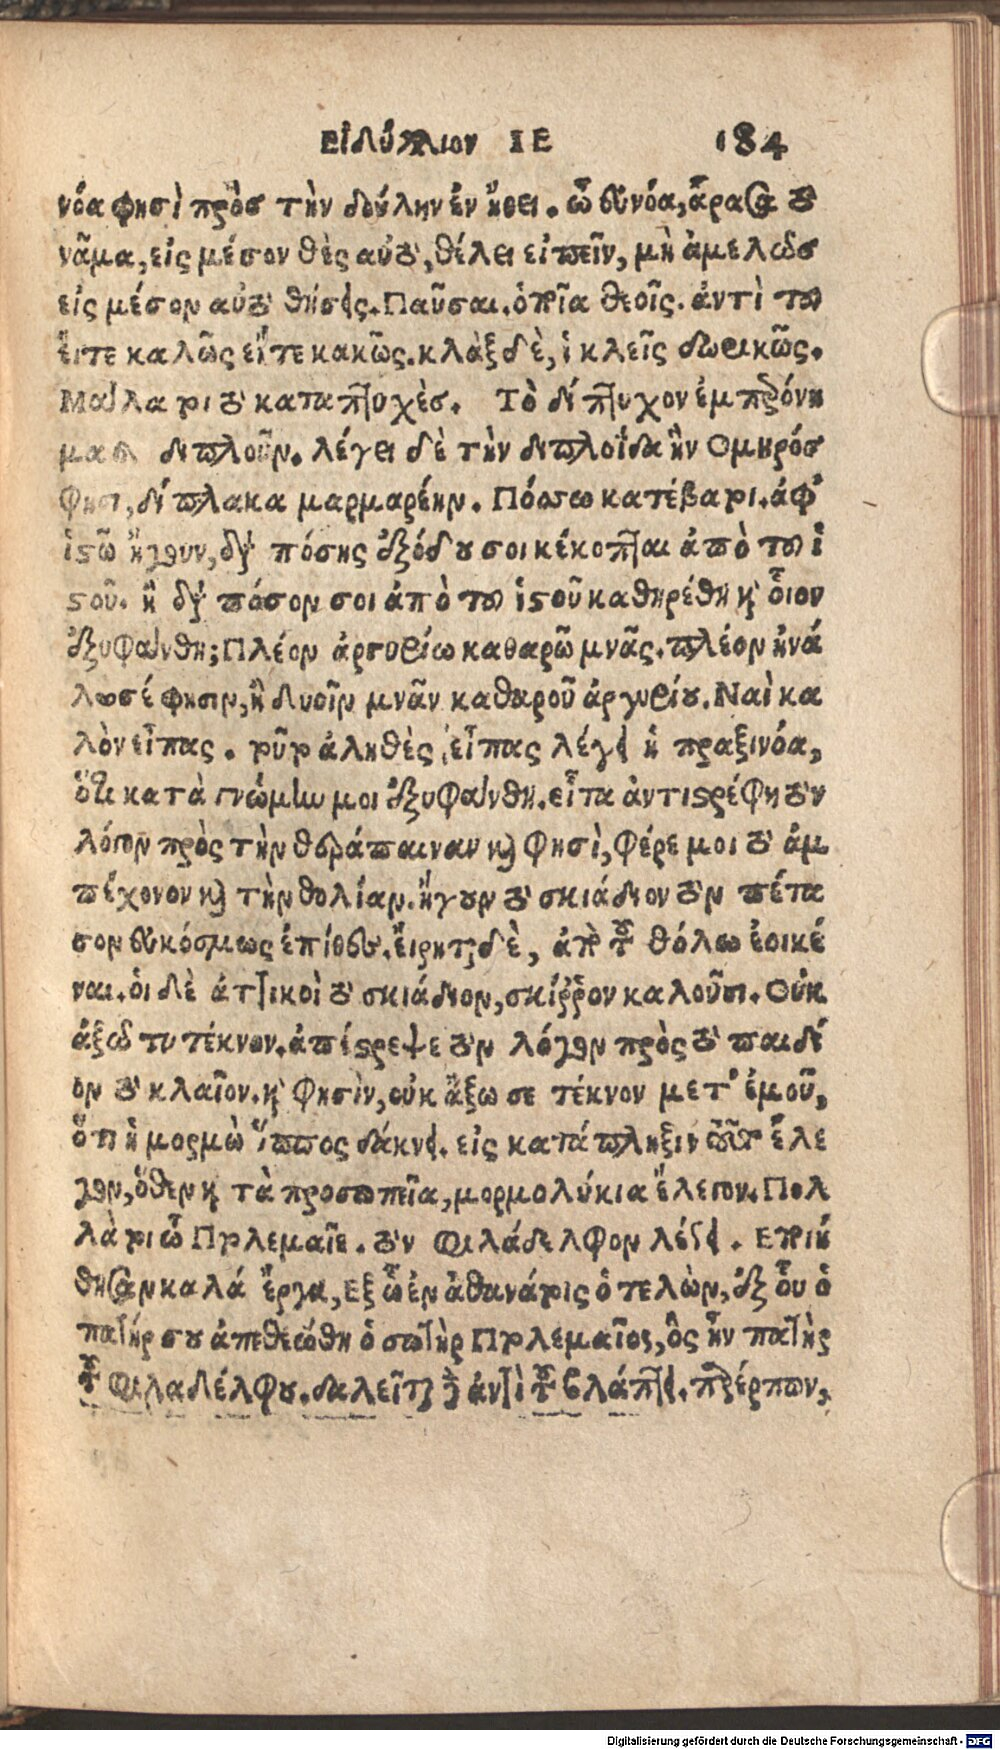 Εἰδύλλιον ΙΕ 184
νόα φησὶ πρὸς τὴν δούλην ἐν ἤθει. ὦ εὐνόα, ἆρασα τὸ
νᾶμα, εἰς μέσον θὲς αὐτὸ, θέλει εἰπεῖν, μὴ ἀμελῶς
εἰς μέσον αὐτὸ θήσεις. Παῦσαι. ὁποῖα θεοῖς. ἀντὶ τοῦ
εἴτε καλῶς εἴτε κακῶς. κλὰξ δὲ, ἡ κλεῖς δωρικῶς.
Μάλα τοι τὸ καταπτυχὲς. Τὸ δίπτυχον ἐμπρόνη
μα διπλοῦν. λέγει δὲ τὴν διπλοΐδα ἣν Ομηρός
φησι, δίπλακα μαρμαρέην. Πόσσω κατέβα τοι. ἀφ'
ἱστῶ ἤγουν, διὰ πόσης ἐξόδου σοι κέκοπται ἀπὸ τοῦ ἱ
στοῦ. ἢ διὰ πόσον σοι ἀπὸ τοῦ ἱστοῦ καθῃρέθη καὶ οἷον
ἐξυφάνθη; Πλέον ἀργυρίω καθαρῶ μνᾶς. πλέον ἠνά
λωσέ φησιν, ἢ δυοῖν μνᾶν καθαροῦ ἀργυρίου. Ναὶ κα
λὸν εἶπας. νῦν ἀληθὲς εἶπας λέγει ἡ πραξινόα,
ὅτι κατὰ γνώμην μοι ἐξυφάνθη. εἶτα ἀντιστρέφη τὸν
λόγον πρὸς τὴν θεράπαιναν καὶ φησὶ, φέρε μοι τὸ ἀμ
πέχονον καὶ τὴν θολίαν. ἤγουν τὸ σκιάδιον τὸν πέτα
σον εὐκόσμως ἐπίθες. εἴρηται δὲ, ἀπὸ τοῦ θόλω ἐοικέ
ναι. οἱ δὲ ἀττικοὶ τὸ σκιάδιον, σκίῤῥον καλοῦσι. Οὐκ
ἀξῶ τυ τέκνον. ἀπέστρεψε τὸν λόγον πρὸς τὸ παιδί
ον τὸ κλαῖον. καὶ φησὶν, οὐκ ἄξω σε τέκνον μετ' ἐμοῦ,
ὅτι ἡ μορμὼ ἵππος δάκνει. εἰς κατάπληξιν τοῦτο ἔλε
γον, ὅθεν καὶ τὰ προσωπεῖα, μορμολύκια ἔλεγον. Πολ
λὰ τοι ὦ Πτολεμαῖε. τὸν Φιλάδελφον λέγει. Εποιή
θησαν καλά ἔργα, Εξ ὧ ἐν ἀθανάτοις ὁ τεκὼν, ἐξ οὗ ὁ
πατήρ σου ἀπεθεώθη ὁ σωτὴρ Πτολεμαῖος, ὃς ἦν πατὴρ
τοῦ Φιλαδέλφου. δαλεῖται γὰρ ἀντὶ τοῦ βλάπτει. παρέρπων,
Digitalisierung gefördert durch die Deutsche Forschungsgemeinschaft - DFG